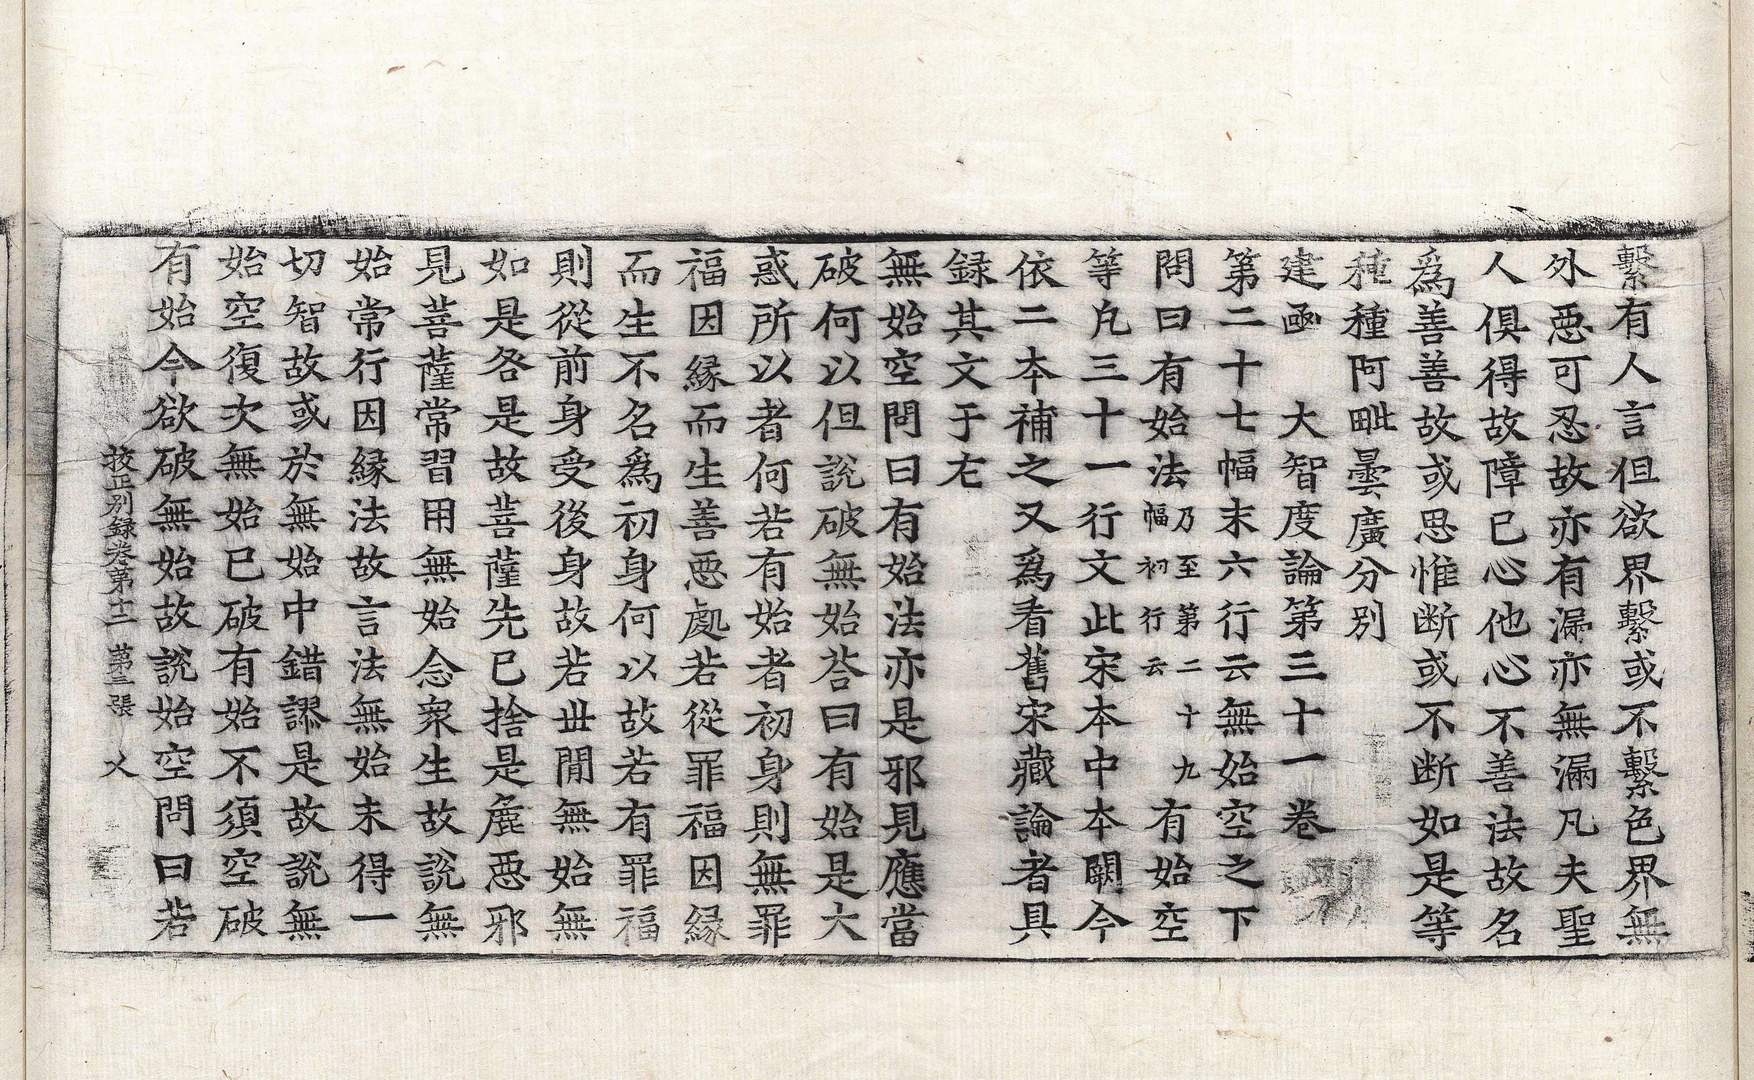 繫有人言但欲界繫或不繫色界無
外惡可忍故亦有漏亦無漏凡夫聖
人俱得故障已心他心不善法故名
爲善善故或思惟断或不断如是等
種種阿毗曇廣分別
建函　大智度論第三十一卷
第二十七幅末六行云無始空之下
問曰有始法乃至第二十九幅初行云有始空
等凡三十一行文此宋本中本闕今
依二本補之又爲看舊宋藏論者具
録其文于左
無始空問曰有始法亦是邪見應當
破何以但說破無始荅曰有始是大
惑所以者何若有始者初身則無罪
福因緣而生善惡處若從罪福因緣
而生不名爲初身何以故若有罪福
則從前身受後身故若世閒無始無
如是咎是故菩薩先已捨是麁惡邪
見菩薩常習用無始念衆生故說無
始常行因緣法故言法無始未得一
切智故或於無始中錯謬是故說無
始空復次無始已破有始不須空破
有始今欲破無始故說始空問曰若
挍正別録卷第十二　第三張　乂